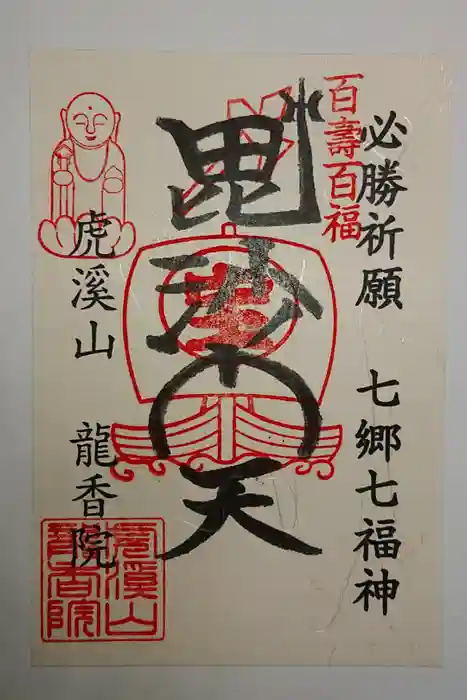 必勝祈願　七郷七福神
百壽百福
毘沙門天
虎溪山　龍香院
虎溪山
龍香院